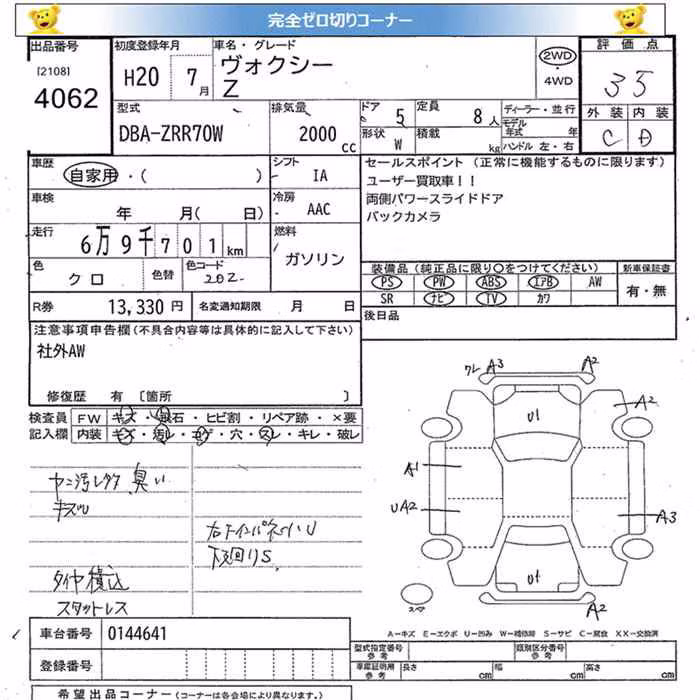 完全ゼロ切りコーナー
出品番号
[2108]
4062
初度登録年月
H20 7月
車名・グレード
ヴォクシー
Z
2WD
・
4WD
評価点
35
外装 内装
C D
型式
DBA-ZRR70W
排気量
2000 cc
ドア 5
形状 W
定員 8人
積載 kg
ディーラー・並行
モデル年式 年
ハンドル 左・右
車歴
自家用・( )
シフト
IA
車検
年 月( 日)
冷房
AAC
走行
6万9千701km
燃料
ガソリン
色
クロ
色替
色コード
202-
R券 13,330円
名変通知期限 月 日
セールスポイント (正常に機能するものに限ります)
ユーザー買取車!!
両側パワースライドドア
バックカメラ
装備品 (純正品に限り○をつけてください)
PS PW ABS エアB AW
SR ナビ TV カワ
新車保証書
有・無
後日品
注意事項申告欄(不具合内容等は具体的に記入して下さい)
社外AW
修復歴 有 [箇所 ]
検査員
記入欄
FW キズ・飛石・ヒビ割・リペア跡・×要
内装 キズ・汚レ・コゲ・穴・スレ・キレ・破レ
ヤニ汚レ 臭い
キズ
下廻りS
タイヤ積込
スタットレス
ワレ A3 A2
U1
A2
A1
UA2
A3
U1
A2
スペア
A-キズ E-エクボ U-凹み W-補修跡 S-サビ C-腐食 XX-交換済
車台番号 0144641
登録番号
型式指定番号
参考
類別区分番号
参考
車庫証明用
参考
長さ cm 幅 cm 高さ cm
希望出品コーナー (コーナーは各会場により異なります。)